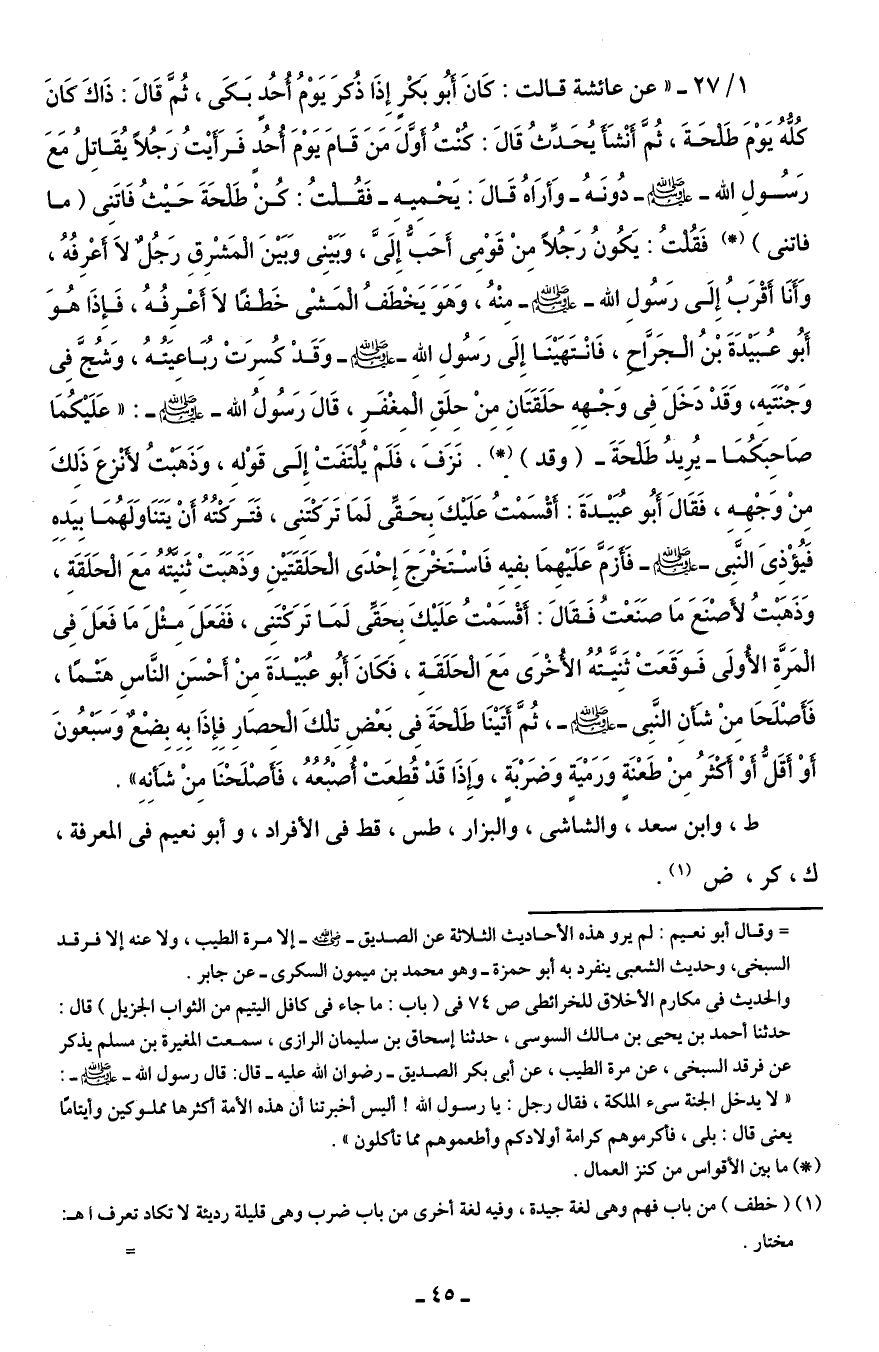 ١/ ٢٧ ـ « عن عائشة قالت : كَانَ أَبُو بَكْرٍ إِذَا ذُكِرَ يَوْمُ أُحُدٍ بَكَى ، ثُمَّ قَالَ : ذَاكَ كَانَ
كُلُّهُ يَوْمَ طَلْحَةَ ، ثُمَّ أَنْشَأَ يُحَدِّثُ قَالَ : كُنْتُ أَوَّلَ مَنَ قَامَ يَوْمَ أُحُدٍ فَرَأَيْتُ رَجُلاً يُقَاتِلُ مَعَ
رَسُولِ الله ـ ﷺ ـ دُونَهُ ـ وَأَرَاهُ قَالَ : يَحْمِيهِ ـ فَقُلْتُ : كُنْ طَلْحَةَ حَيْثُ فَاتَنِى ( مـا
فاتنى ) (*) فَقُلْتُ : يَكُونُ رَجُلاً مِنْ قَوْمِى أَحَبُّ إِلَىَّ ، وَبَيْنِى وَبَيْنَ الْمَشْرِقِ رَجُلٌ لاَ أَعْرِفُهُ ،
وَأَنَا أَقْرَبُ إِلَى رَسُولِ الله ـ ﷺ ـ مِنْهُ ، وَهَوَ يَخْطَفُ الْمَشْىَ خَطْفًا لاَ أَعْرِفُهُ ، فَإِذَا هُوَ
أَبُو عُبَيْدَةَ بْنُ الْجَرَّاحِ ، فَانْتَهَيْنَا إِلَى رَسُولِ الله ـ ﷺ ـ وَقَدْ كُسِرَتْ رُبَاعِيَتُهُ ، وَشُجَّ فِى
وَجْنَتَيهِ، وَقَدْ دَخَلَ فِى وَجْهِهِ حَلَقَتَانِ مِنْ حِلَقِ الْمِغْفَرِ ، قَالَ رَسُولُ الله ـ ﷺ ـ : « عَلَيْكُمَا
صَاحِبَكُمَا ـ يُرِيدُ طَلْحَةَ ـ ( وقد ) (*) . نَزَفَ ، فَلَمْ يُلْتَفَتْ إِلَى قَوْلِهِ ، وَذَهَبْتُ لأَنْزِعَ ذَلِكَ
مِنْ وَجْهِهِ ، فَقَالَ أَبُو عُبَيْدَةَ : أَقْسَمْتُ عَلَيْكَ بِحَقِّى لَمَا تَرَكْتَنِى ، فَتَرَكْتُهُ أَنْ يَتَنَاوَلَهُمَا بِيَدِهِ
فَيُؤْذِىَ النَّبِى ـ ﷺ ـ فَأَزَمَّ عَلَيْهِمَا بِفِيهِ فَاسْتَخْرَجَ إِحْدَى الْحَلَقَتَيْنِ وَذَهَبَتْ ثَنِيَّتُهُ مَعَ الْحَلَقَةِ ،
وَذَهَبْتُ لأَصْنَعَ مَا صَنَعْتُ فَقَالَ : أَقْسَمْتُ عَلَيْكَ بِحَقِّى لَمَا تَرَكْتَنِى ، فَفَعَلَ مِثْلَ مَا فَعَلَ فِى
الْمَرَّةِ الأُولَى فَوَقَعَتْ ثَنِيَّتُهُ الأُخْرَى مَعَ الْحَلَقَةِ ، فَكَانَ أَبُو عُبَيْدَةَ مِنْ أَحْسَنِ النَّاسِ هَتْمًا ،
فَأَصْلَحَا مِنْ شَأنِ النَّبِى ـ ﷺ ـ ، ثُمَّ أَتَيْنَا طَلْحَةَ فِى بَعْضِ تِلْكَ الْحِصَارِ فِإِذَا بِهِ بِضْعٌ وَسَبْعُونَ
أَوْ أَقَلُّ أَوْ أَكْثَرُ مِنْ طَعْنَةٍ وَرَمْيَةٍ وَضَرْبَةٍ ، وَإِذَا قَدْ قُطِعَتْ أُصْبُعُهُ ، فَأَصْلَحْنَا مِنْ شَأنِهِ» .
ط ، وابن سعد ، والشاشى ، والبزار ، طس ، قط فى الأفراد ، و أبو نعيم فى المعرفة ،
ك ، كر ، ض (١) .
= وقـال أبو نعيم : لم يرو هذه الأحاديث الثلاثة عن الصديق ـ رضي الله عنه ـ إلا مرة الطيب ، ولا عنه إلا فرقد
السبخى، وحديث الشعبى ينفرد به أبو حمزة ـ وهو محمد بن ميمون السكرى ـ عن جابر .
والحديث فى مكارم الأخلاق للخرائطى ص ٧٤ فى ( باب : ما جاء فى كافل اليتيم من الثواب الجزيل ) قال :
حدثنا أحمد بن يحيى بن مالك السوسى ، حدثنا إسحاق بن سليمان الرازى ، سمعت المغيرة بن مسلم يذكر
عن فرقد السبخى ، عن مرة الطيب ، عن أبى بكر الصديق ـ رضوان الله عليه ـ قال: قال رسول الله ـ ﷺ ـ :
« لا يدخل الجنة سىء الملكة ، فقال رجل : يا رسول الله ! أليس أخبرتنا أن هذه الأمة أكثرها مملوكين وأيتامًا
يعنى قال : بلى ، فأكرموهم كرامة أولادكم وأطعموهم مما تأكلون » .
(*) ما بين الأقواس من كنز العمال .
(١) ( خطف ) من باب فهم وهى لغة جيدة ، وفيه لغة أخرى من باب ضرب وهى قليلة رديئة لا تكاد تعرف اهـ:
مختار .
=
ـ ٤٥ ـ